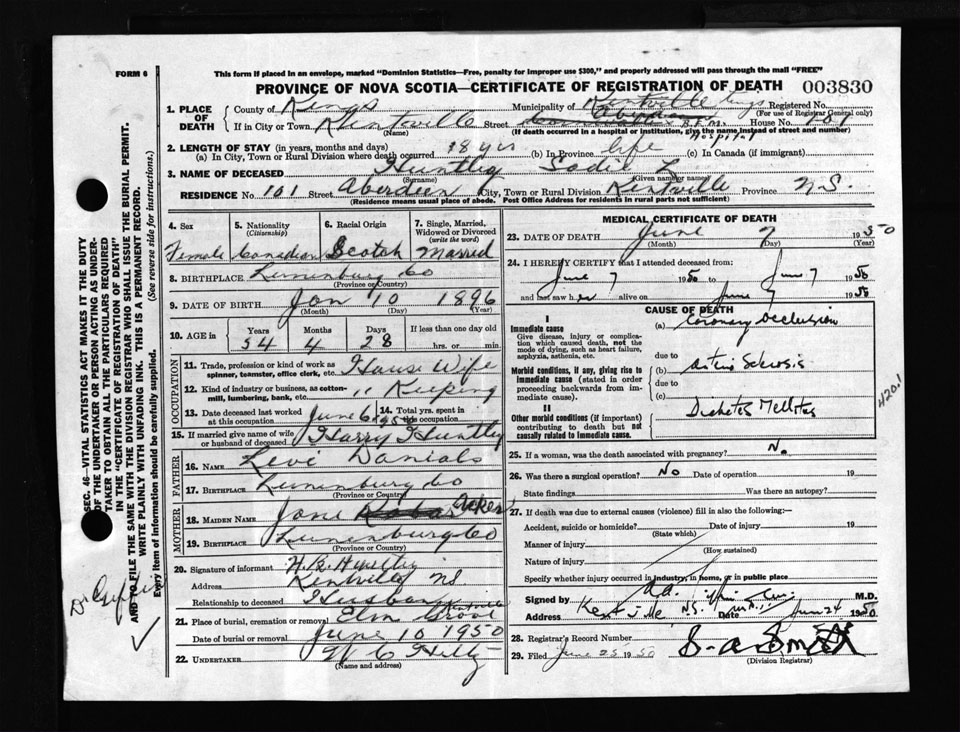 FORM 6
This form if placed in an envelope, marked "Dominion Statistics—Free, penalty for improper use $300," and properly addressed will pass through the mail "FREE"
PROVINCE OF NOVA SCOTIA—CERTIFICATE OF REGISTRATION OF DEATH 003830
1. PLACE OF DEATH County of Kings Municipality of Kentville Kings Registered No.
(For use of Registrar General only)
If in City or Town Kentville Street Aberdeen B.F.M. Hospital House No. 101
(Name) (If death occurred in a hospital or institution, give the name instead of street and number)
2. LENGTH OF STAY (in years, months and days)
(a) In City, Town or Rural Division where death occurred 18 yrs (b) In Province life (c) In Canada (if immigrant)
3. NAME OF DECEASED Huntley Sadie L
(Surname) (Given name or names)
RESIDENCE No. 101 Street Aberdeen City, Town or Rural Division Kentville Province N.S.
(Residence means usual place of abode. Post Office Address for residents in rural parts not sufficient)
4. Sex Female
5. Nationality (Citizenship) Canadian
6. Racial Origin Scotch
7. Single, Married, Widowed or Divorced (write the word) Married
8. BIRTHPLACE Lunenburg Co
(Province or Country)
9. DATE OF BIRTH Jan 10 1896
(Month) (Day) (Year)
10. AGE in Years Months Days If less than one day old
54 4 28 hrs. or min.
OCCUPATION
11. Trade, profession or kind of work as spinner, teamster, office clerk, etc. House Wife
12. Kind of industry or business, as cotton-mill, lumbering, bank, etc. " Keeping
13. Date deceased last worked at this occupation June 6 1950
14. Total yrs. spent in this occupation
15. If married give name of wife or husband of deceased Harry Huntley
FATHER
16. NAME Levi Danials
17. BIRTHPLACE Lunenburg Co
(Province or Country)
MOTHER
18. MAIDEN NAME Jane Acker
19. BIRTHPLACE Lunenburg Co
(Province or Country)
20. Signature of informant H. B. Huntley
Address Kentville NS
Relationship to deceased Husband
21. Place of burial, cremation or removal Elm Grove Kentville
Date of burial or removal June 10 1950
22. UNDERTAKER W C Hiltz
(Name and address)
MEDICAL CERTIFICATE OF DEATH
23. DATE OF DEATH June 7 1950
(Month) (Day) (Year)
24. I HEREBY CERTIFY that I attended deceased from:
June 7 1950 to June 7 1950
and last saw her alive on June 7 1950
CAUSE OF DEATH
I
Immediate cause
Give disease, injury or complication which caused death, not the mode of dying, such as heart failure, asphyxia, asthenia, etc.
(a) Coronary Occlusion
due to
Morbid conditions, if any, giving rise to immediate cause (stated in order proceeding backwards from immediate cause).
(b) Arterio Sclerosis
due to
(c)
II
Other morbid conditions (if important) contributing to death but not causally related to immediate cause.
Diabetes Mellitus
420.1
25. If a woman, was the death associated with pregnancy? No.
26. Was there a surgical operation? No Date of operation 19
State findings Was there an autopsy?
27. If death was due to external causes (violence) fill in also the following:—
Accident, suicide or homicide? Date of injury 19
(State which)
Manner of injury
(How sustained)
Nature of injury
Specify whether injury occurred in industry, in home, or in public place
Signed by M.D.
Address Kentville NS. Date June 24 1950
28. Registrar's Record Number
29. Filed June 25 1950 S. A. Smith
(Division Registrar)
SEC. 46—VITAL STATISTICS ACT MAKES IT THE DUTY
OF THE UNDERTAKER OR PERSON ACTING AS UNDER-
TAKER TO OBTAIN ALL THE PARTICULARS REQUIRED
IN THE "CERTIFICATE OF REGISTRATION OF DEATH"
AND TO FILE THE SAME WITH THE DIVISION REGISTRAR WHO SHALL ISSUE THE BURIAL PERMIT.
WRITE PLAINLY WITH UNFADING INK. THIS IS A PERMANENT RECORD.
Every item of information should be carefully supplied. (See reverse side for instructions.)